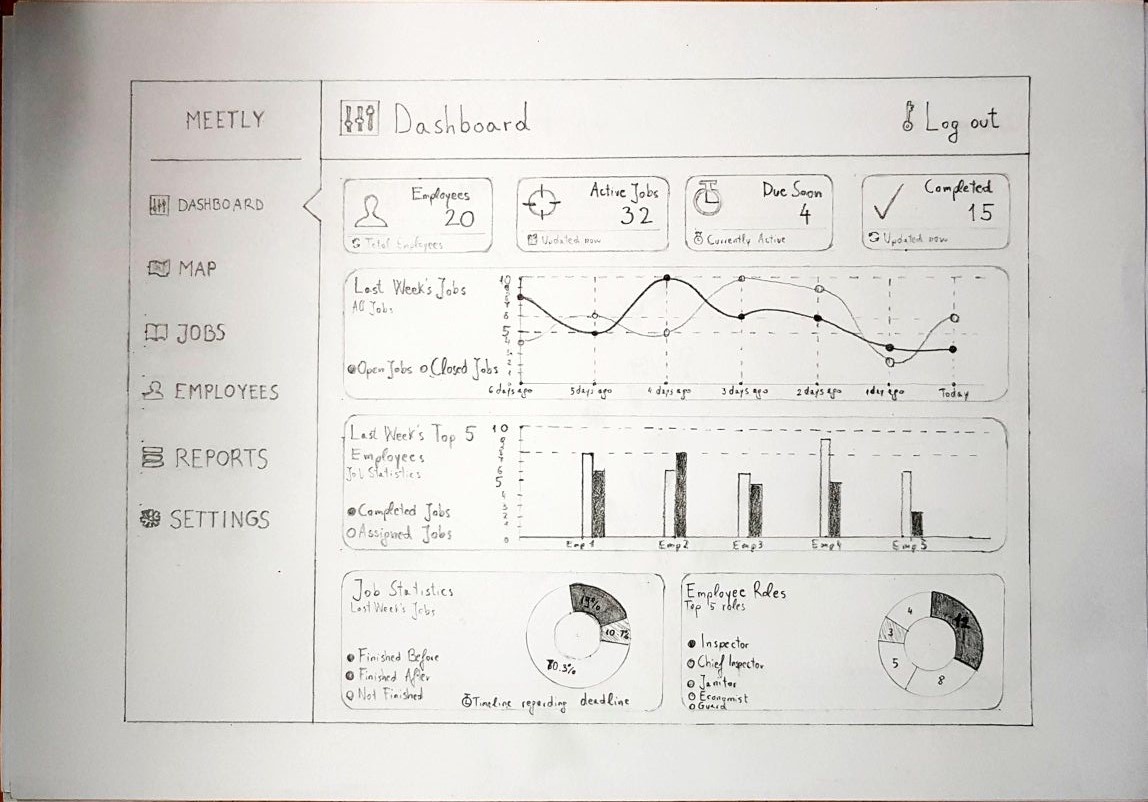 MEETLY
DASHBOARD
MAP
JOBS
EMPLOYEES
REPORTS
SETTINGS
Dashboard
Log out
Employees
20
Total Employees
Active Jobs
32
Updated now
Due Soon
4
Currently Active
Completed
15
Updated now
Last Week's Jobs
Jobs
Open Jobs Closed Jobs
10
9
8
7
6
5
4
3
2
1
6 days ago 5 days ago 4 days ago 3 days ago 2 days ago 1 day ago Today
Last Week's Top 5
Employees
Job Statistics
Completed Jobs
Assigned Jobs
10
9
8
7
6
5
4
3
2
1
0
Emp 1 Emp 2 Emp 3 Emp 4 Emp 5
Job Statistics
Last Week's Jobs
Finished Before
Finished After
Not Finished
19%
10.7%
70.3%
Timeline regarding deadline
Employee Roles
Top 5 roles
Inspector
Chief Inspector
Janitor
Economist
Guard
4
12
3
5
8